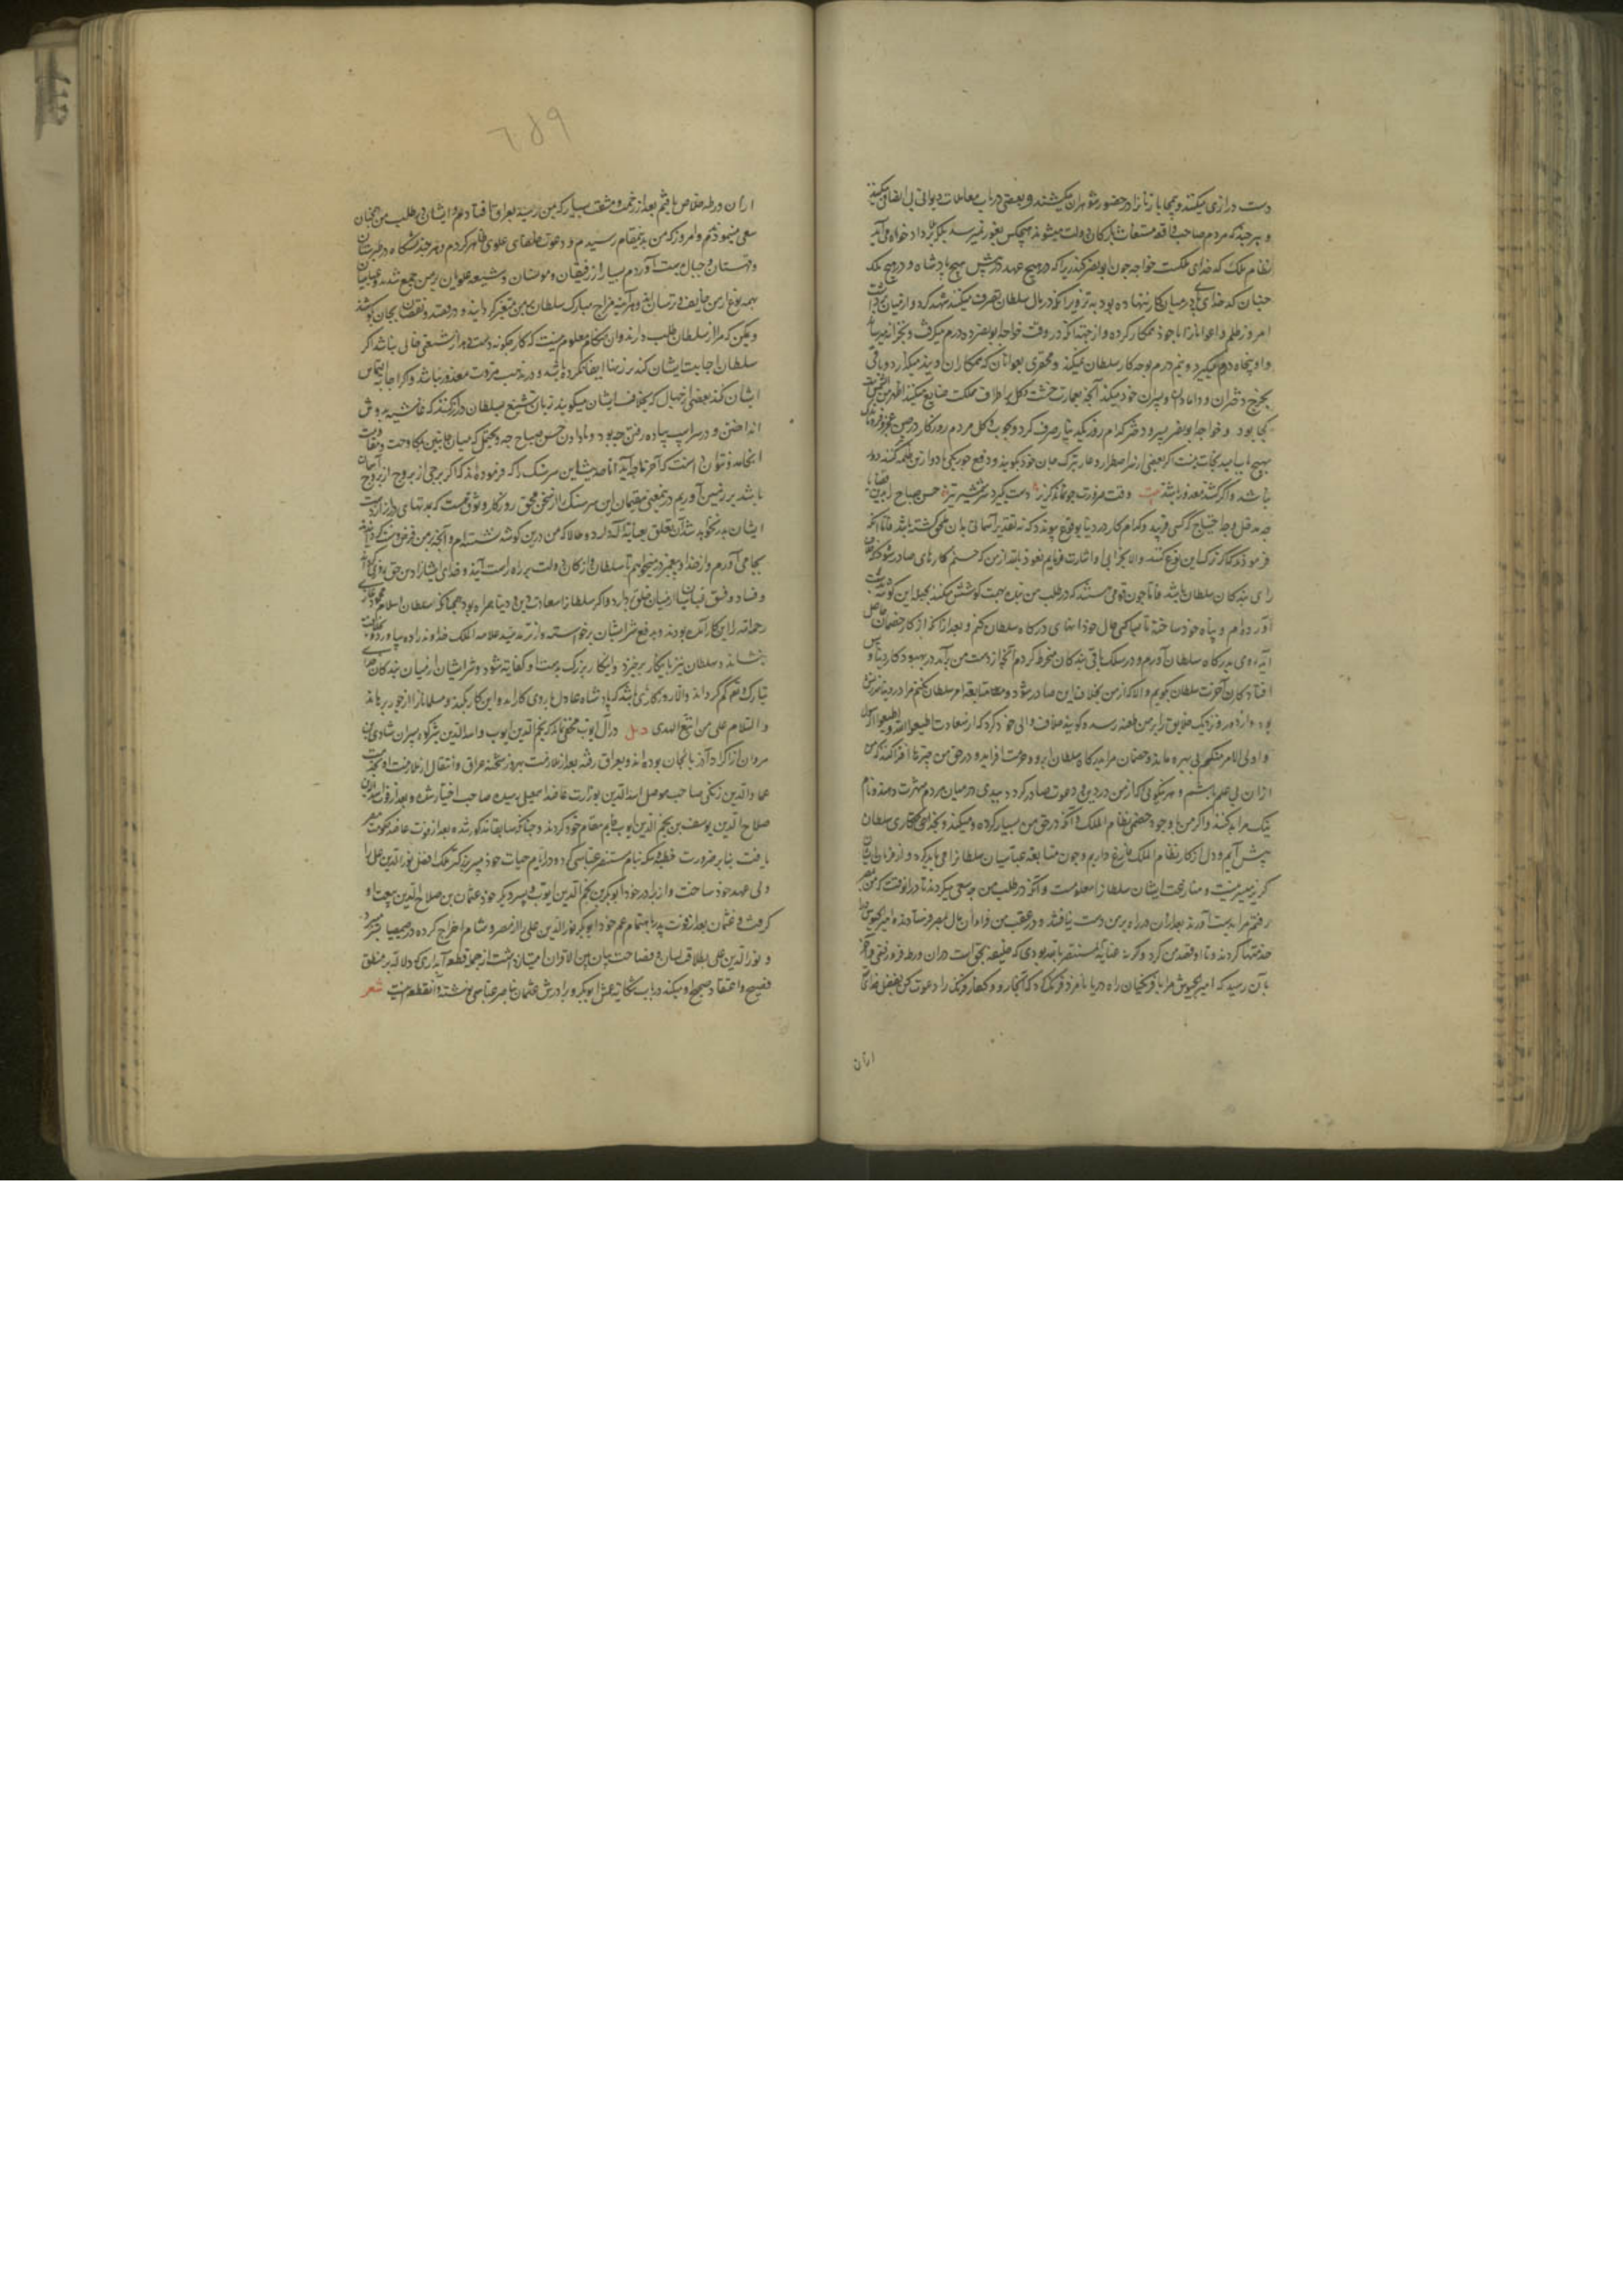 دست درازی میکنند و بمحابا زنانرا در حضور شوهران میکشند و بعضی در باب معاملات دیوانی بی انصافی میکنند
و هر چند که مردم صاحب واقعه مستغاث بارکان دولت میشوند هیچکس بغور نمیرسد بلکه بر داد خواه می آید
نظام ملک که کدخدای مملکت خواجه چون ابو نصر کندر را که در هیچ عهد در پیش هیچ پادشاه و در هیچ ملک
چنان کدخدای پای در میان کار ننهاده بود به تزویر آنکه در مال سلطان تصرف میکند شهید کرد و از میان برداشت
امروز ظلمه و اعوانانرا با خود همکار کرده و از جهة آنکه در وقت خواجه ابو نصر ده درم میگرفت و بخزانه میرساند
و او پنجاه درم میگیرد و نیم درم بوجه کار سلطان نمیکند و محقری بعوانان که همکاران اویند میگذارد و باقی
بخرج دختران و دامادان و پسران خود میکند آنچه بعمارت خشت و گل بر اطراف مملکت ضایع میکند اظهر من الشمس است
کجا بود و خواجه ابو نصر پسر و دختر کدام روز یکدینار صرف کرد و بچوب و گل مردم روزگار در چنین عجز و فروماندگی
بهیچ باب امید نجات نیست اگر بعضی از سر اضطرار و عار ترک جان خود بگویند و دفع جور یکی یا دو ازین ظلمه کنند دور
نباشد و اگر کنند معذور باشند بیت وقت ضرورت چو نماند گریز دست بگیرد سر شمشیر تیز حسن صباح را بدین قضایا
چه مدخل و چه احتیاج که کسی فریبد و کدام کار در دنیا بوقوع پیوندد که نه تقدیر آسمانی بدان ملحق گشته باشد فاما آنکه
فرموده که اگر ترک این نوع کند والا بخرابی او اشارت فرمایم نعوذ بالله از من که حسنم کارهای صادر شود که خلاف
رای بندکان سلطان باشد فاما چون قومی هستند که در طلب من بنده بجهت کوشش میکنند بحیله این گوشه بدست
آورده ام و پناه خود ساخته تا مباکمی حال خود انهای درگاه سلطان کنم و بعد از آنکه از کار خصمان حاصل
آید روی بدرگاه سلطان آورم و در سلک باقی بندکان منخرط گردم آنچه از دست من برآید در بهبود کار دنیا و پس
افتادگان آخرت سلطان بگویم والا که از من بخلاف این صادر شود و مطابقه امر سلطان نکنم مرا در دنیا سرزنش
بود و از دور و نزدیک خلایق را بر من طعنه رسد و گویند خلاف والی خود کرد که از سعادت اطیعوا الله و اطیعوا الرسول
و اولی الامر منکم بی بهره ماند و خصمان مرا بدرگاه سلطان آبرو و حرمت افزاید و در حق من چیزها افترا کنند که من
از ان بی علم باشم و هر نیکوئی که از من در دین و دعوت صادر گردد ببدی در میان مردم شهرت دهند و نام
نیک مرا بد کنند و اگر من با وجود خصمی نظام الملک و آنکه در حق من بسیار کرده و میکند و بخدمتکاری سلطان
پیش آیم و دل از کار نظام الملک فارغ داریم و چون متابعة عباسیان سلطانرا می باید کرد و از فرمان ایشان
گریز میسر نیست و منازعت ایشان سلطانرا معلومست و آنکه در طلب من چه سعی میکردند تا در انوقت که من بمصر
رفتم مرا بدست آورند بعد از ان در راه بر من دست نیافتند و در عقب من فراوان مال بمصر فرستادند و امیر الجیوش را
خدمتها کردند و تا او قصد من کرد و اگر نه عنایة مستنصر بالله بودی که خلیفه بحق است در ان ورطه فرو رفتمی و آخر
بآن رسید که امیر الجیوش مرا با فرنگیان راه دریا نامزد فرنگ کرد که آنجا رو و کفار فرنگ را دعوت کن بفضل خدای
اران
٦٨٩
ازان ورطه خلاص یافتم بعد از زحمت و مشقت بسیار که بمن رسید بعراق افتادم و ایشان در طلب من همچنان
سعی مینمودند و امروز که من بدینمقام رسیدم و دعوت خلفای علوی ظاهر کردم و هر چند ... در طبرستان
و قهستان و جبال بدست آوردم بسیار از رفیقان و مومنان و شیعه علویان بر من جمع شدند و عباسیان
بهمه نوع از من خایف و ترسان اند و هر آینه مزاج مبارک سلطان بر من متغیر گردانیدند و در قصد و نقصان بجان کوشند
و یمکن که مرا از سلطان طلب دارند و ان هنگام معلوم نیست که کار چگونه دست دهد از تشنیعی خالی نباشد اگر
سلطان اجابت ایشان کند ... و در مذهب مروت معذور نباشد و اگر اجابة التماس
ایشان نکند بعضی از جهال که بخلاف ایشان میگویند زبان تشنیع بسلطان دراز کنند که غاشیه بر دوش
انداختن و در سر اسپ پیاده رفتن چه بود و ندادن حسن صباح چه و یحتمل که میان جانبین بمکاوحت و مقاومت
انجامد و نتوان دانست که آخر تا چه آید اما حدیث این سر سنگ را که فرموده اند که اگر برجی از بروج آسمان
باشد بر زمین آوریم در نیمعنی مقیمان این سر سنگ را از سخن محق روزگار وثوق هست که مدتهای دراز از دست
ایشان بدر نخواهد شد آن تعلق بعنایة الله دارد و حالا که من درین گوشه نشسته ام و آنچه بر من فرض و سنت گردانیده
بجا می آورم و از خدا و پیغمبر در میخواهم تا سلطان و ارکان دولت بر راه راست آیند و خدای ایشانرا دین حق روزی گناد
و فساد و فسق عباسیان از میان خلق بردارد و اگر سلطانرا سعادت دین و دنیا همراه بود همچنانکه سلطان اسلام محمود غازی
رحمة الله را این کار آمده بود و بدفع شر ایشان برخواسته و از ترمذ سید علاء الملک خداوند زاده بیاورد و بخلافت
بنشاند و سلطان نیز باینکار برخیزد و اینکار بزرگ بدست او کفایه شود و شر ایشان از میان بندگان خدای
تبارک و تعالی کم گرداند والا روزگاری باشد که پادشاه عادل بروی کار آید و این کار بکند و مسلمانانرا از جور برهاند
والسلام علی من اتبع الهدی در آل ایوب مخفی نماند که نجم الدین ایوب و اسد الدین شیرکوه پسران شادی بن
مروان از اکراد آذربایجان بوده اند و بعراق رفته بعد از ملازمت بهروز شحنه عراق و انتقال از ملازمت او بخدمت
عماد الدین زنگی صاحب موصل اسد الدین بوزارت عاضد اسمعیلی رسیده صاحب اختیار شد و بعد از فوت اسد الدین
صلاح الدین یوسف بن نجم الدین ایوب قایم مقام خود کردند و چنانکه سابقا مذکور شد بعد از فوت عاضد حکومت مصر
یافت بنابر ضرورت خطبه و سکه بنام مستنصر عباسی کرد و در ایام حیات خود پسر بزرگتر ملک افضل نور الدین علی را
ولی عهد خود ساخت و از برادر خود ابو بکر بن نجم الدین ایوب و پسر دیگر خود عثمان بن صلاح الدین بیعت او
گرفت و عثمان بعد از فوت پدر باهتمام عم خود ابو بکر نور الدین علی را از مصر و شام اخراج کرده در ...
و نور الدین علی بطلاقت لسان و فصاحت بیان بین الاقران امتیاز داشت از جمله قطعه آبداری که دلالت بر منطق
فصیح و اعتقاد صحیح او میکند در باب شکایة عمش ابو بکر و برادرش عثمان بناصر عباسی نوشته و آنقطعه اینست شعر